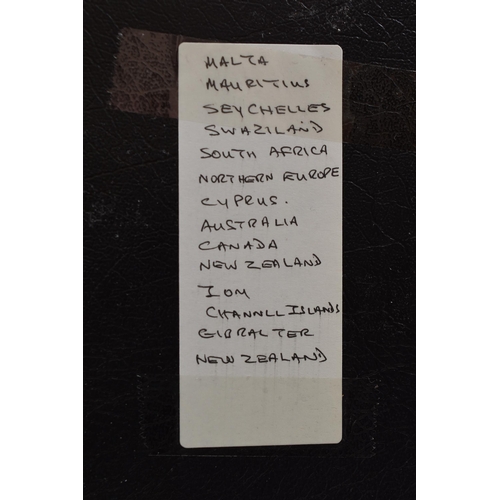 MALTA
MAURITIUS
SEYCHELLES
SWAZILAND
SOUTH AFRICA
NORTHERN EUROPE
CYPRUS.
AUSTRALIA
CANADA
NEW ZEALAND
IOM
CHANNLL ISLANDS
GIBRALTER
NEW ZEALAND